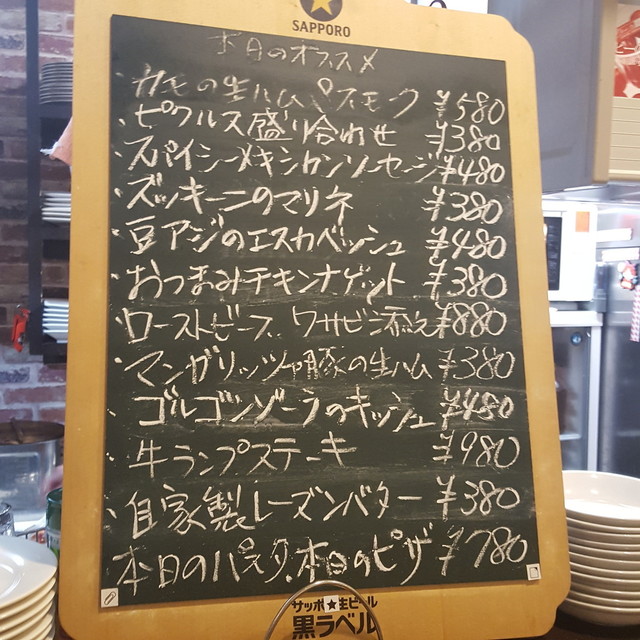 SAPPORO
本日のオススメ
・カモの生ハム スモーク ¥580
・ピクルス盛り合わせ ¥380
・スパイシーメキシカンソーセージ ¥480
・ズッキーニのマリネ ¥380
・豆アジのエスカベッシュ ¥480
・おつまみチキンナゲット ¥380
・ローストビーフ ワサビ添え ¥880
・マンガリッツァ豚の生ハム ¥380
・ゴルゴンゾーラのキッシュ ¥480
・牛ランプステーキ ¥980
・自家製レーズンバター ¥380
本日のパスタ、本日のピザ ¥780
サッポロ★生ビール
黒ラベル